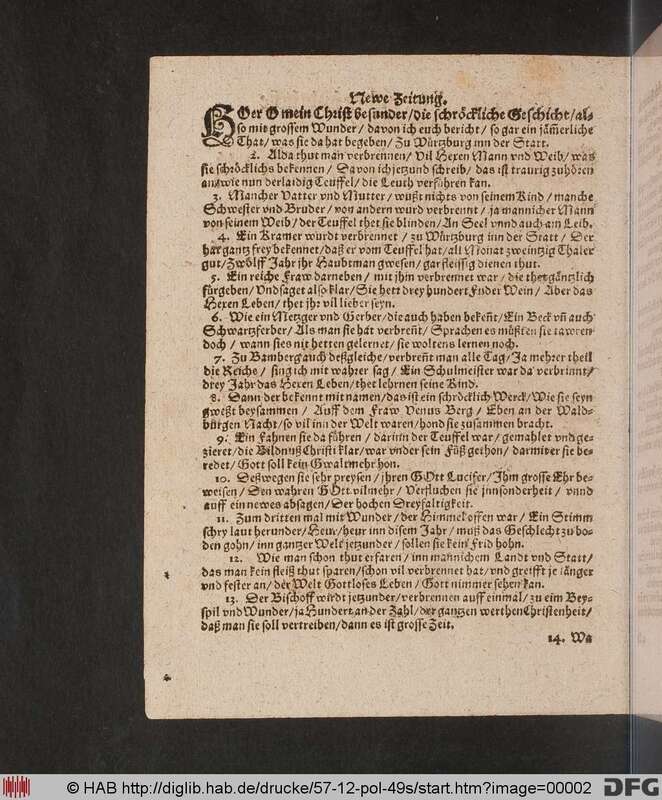 Newe Zeitung.
HOer O mein Christ besunder/die schröckliche Geschicht/al-
so mit grossem Wunder / davon ich euch bericht / so gar ein jäm̃erliche
That/ was sie da hat begeben / Zu Würtzburg inn der Statt.
2. Alda thut man verbrennen/ Vil Hexen Mann vnd Weib/ was
sie schröcklichs bekennen / Davon ich jetzund schreib/ das ist traurig zuhören
an/wie nun der laidig Teuffel/ die Leuth verführen kan.
3. Mancher Vatter vnd Mutter/ wußt nichts von seinem Kind/ manche
Schwester vnd Bruder/ von andern wurd verbrennt/ ja mannicher Mann
von seinem Weib/ der Teuffel thet sie blinden/ An Seel vnnd auch am Leib.
4. Ein Kramer wurdt verbrennet / zu Würtzburg inn der Statt / Der
hat gantz frey bekennet/daß er vom Teuffel hat/ all Monat zweintzig Thaler
gut/ Zwölff Jahr jhr Haubtman gwesen/ gar fleissig dienen thut.
5. Ein reiche Fraw darneben / mit jhm verbrennet war / die thet gäntzlich
fürgeben/ Vnd saget also klar/ Sie hett drey hundert Fuder Wein/ Aber das
Hexen Leben/ thet jhr vil lieber seyn.
6. Wie ein Metzger vnd Gerber/ die auch haben bekeñt/ Ein Beck vñ auch
Schwartzferber/ Als man sie hat verbreñt/ Sprachen es müßten sie tawren
doch / wann sies nit hetten gelernet/ sie woltens lernen noch.
7. Zu Bamberg auch deßgleiche/ verbreñt man alle Tag/ Ja mehrer theil
die Reiche / sing ich mit wahrer sag / Ein Schulmeister war da verbrinnt/
drey Jahr das Hexen Leben/ thet lehrnen seine Kind.
8. Dann der bekennt mit namen/das ist ein schröcklich Werck/ Wie sie seyn
gweßt beysammen / Auff dem Fraw Venus Berg / Eben an der Wald-
bürgen Nacht/ so vil inn der Welt waren/ hond sie zusammen bracht.
9. Ein Fahnen sie da führen / darinn der Teuffel war/ gemahlet vnd ge-
zieret/ die Bildnuß Christi klar/ war vnder sein Füß gethon/ darmit er sie be-
redet/ Gott soll kein Gwalt mehr hon.
10. Deßwegen sie sehr preysen / jhren GOtt Lucifer/ Ihm grosse Ehr be-
weisen / Den wahren GOtt vilmehr / Verfluchen sie jnnsonderheit / vnnd
auff ein newes absagen/ Der hochen Dreyfaltigkeit.
11. Zum dritten mal mit Wunder/ der Himmel offen war / Ein Stimm
schry laut herunder/ Hewr/ hewr inn disem Jahr/ muß das Geschlecht zu bo-
den gohn/ inn gantzer Welt jetzunder/ sollen sie kein Frid hohn.
12. Wie man schon thut erfaren / inn mannichem Landt vnd Statt/
das man kein fleiß thut sparen/ schon vil verbrennet hat/ vnd greifft je länger
vnd fester an/ der Welt Gottloses Leben/ Gott nimmer sehen kan.
13. Der Bischoff wirdt jetzunder/ verbrennen auff einmal/ zu eim Bey-
spil vnd Wunder/ ja Hundert an der Zahl/ der gantzen werthen Christenheit/
daß man sie soll vertreiben/ dann es ist grosse Zeit.
14. Wa
© HAB http://diglib.hab.de/drucke/57-12-pol-49s/start.htm?image=00002
DFG